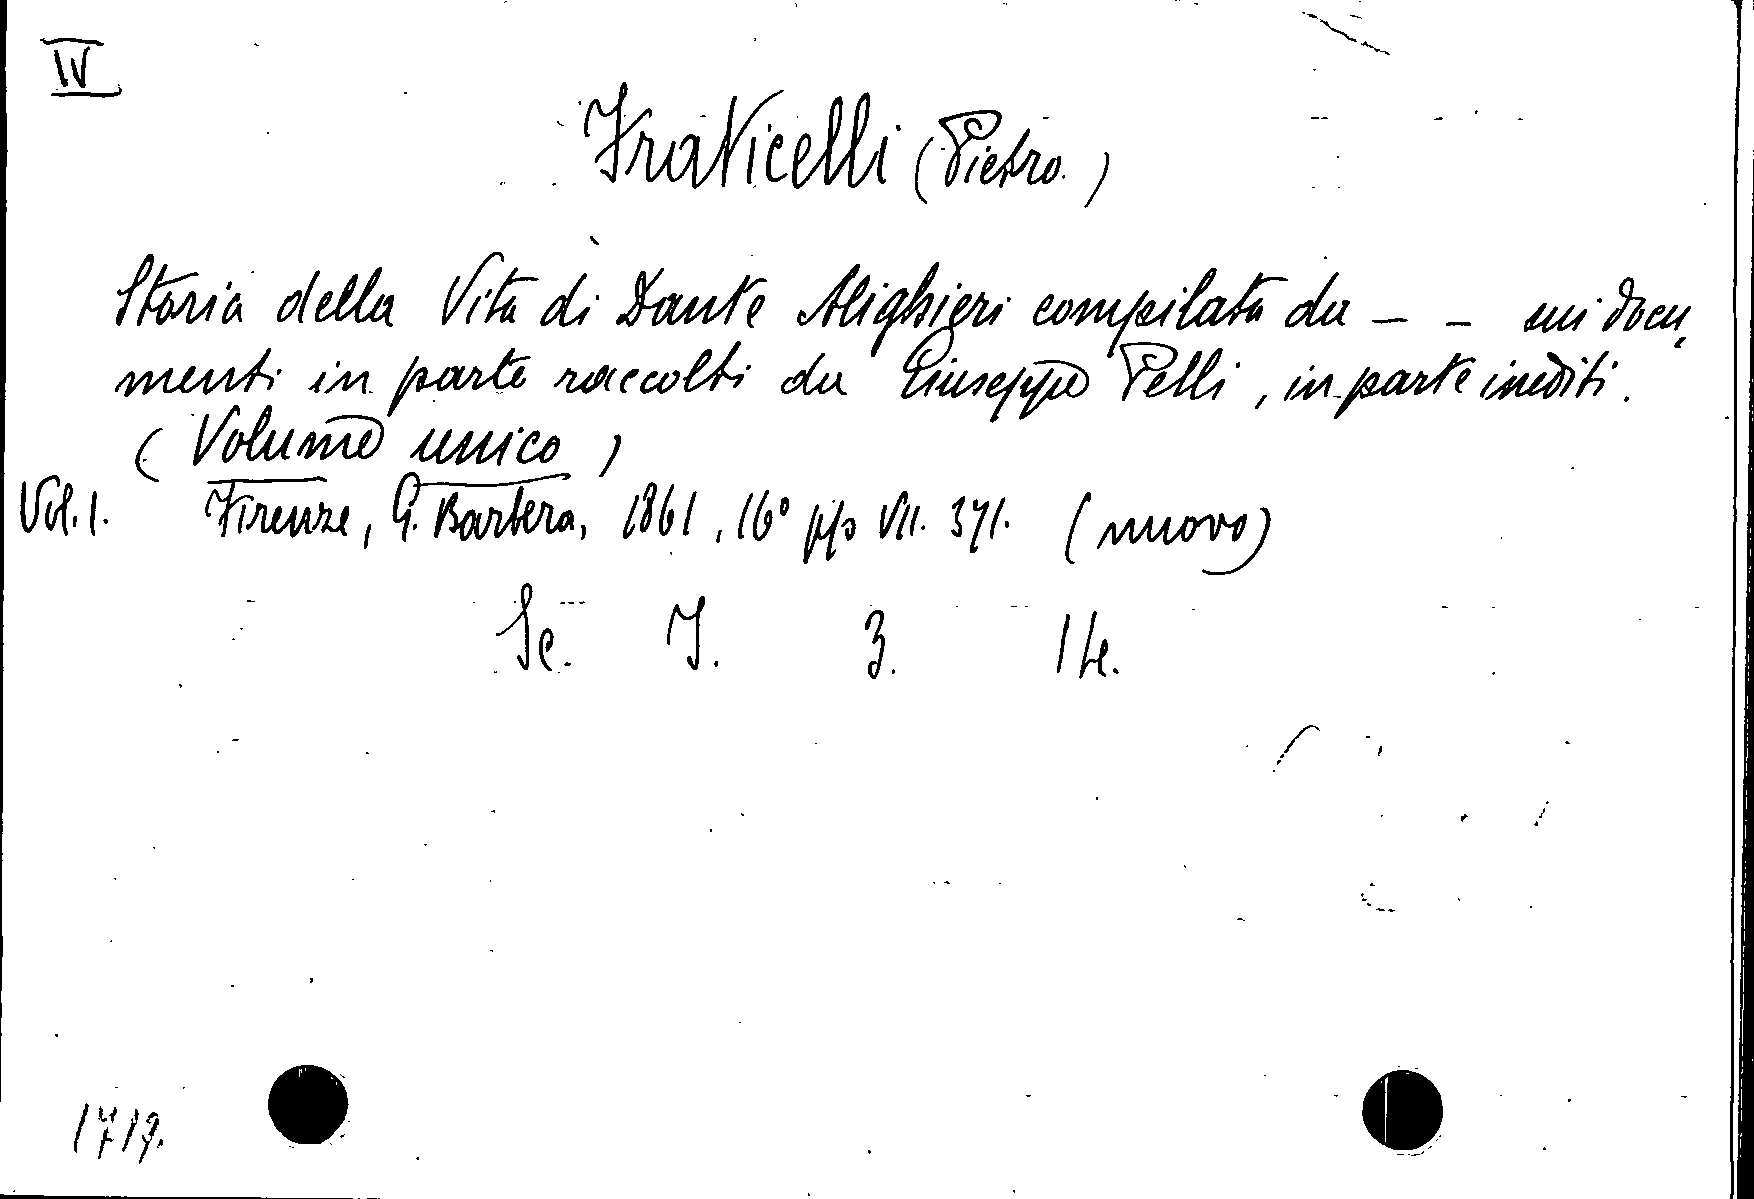 IV
Fraticelli (Pietro.)
Storia della Vita di Dante Alighieri compilata da - - sui docu,
menti in parte raccolti da Giuseppe Pelli, in parte inediti.
(Volume unico)
Vol. 1. Firenze, G. Barbera, 1861, 16° pp VII. 371. (nuovo)
Sc. I. 3.
1719.